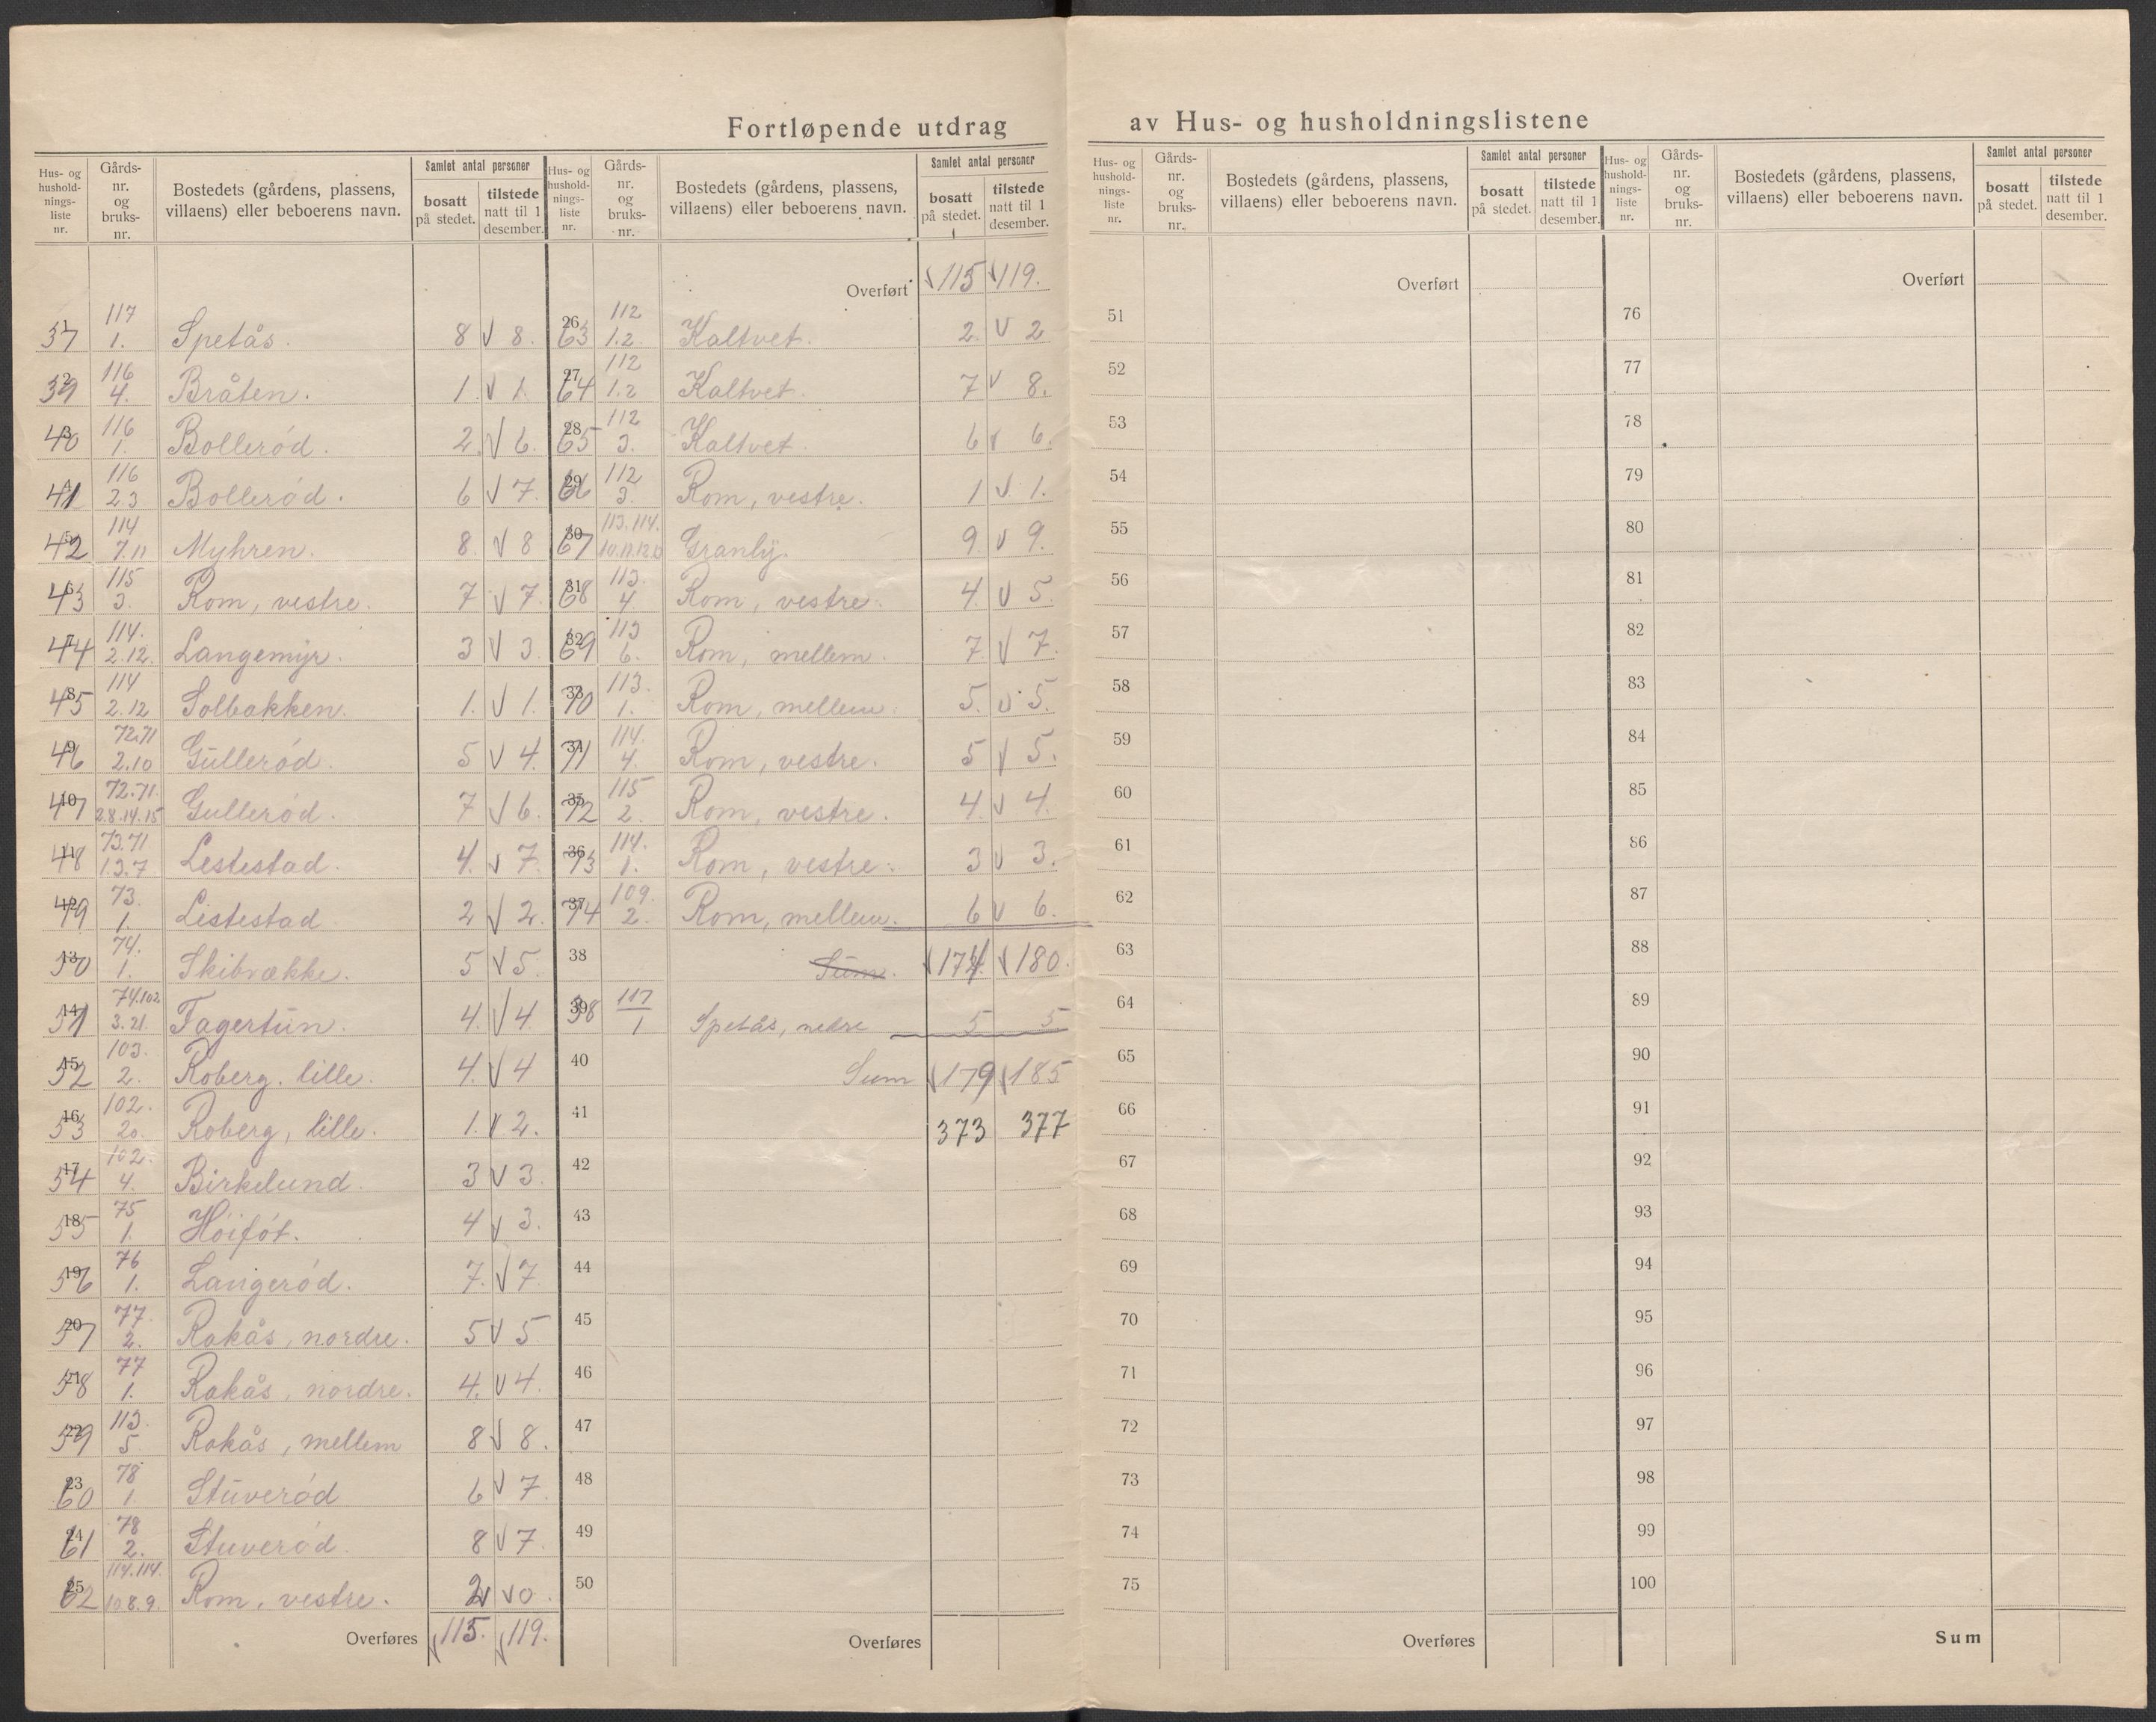 Fortløpende utdrag av Hus- og husholdningslistene
Hus- og hushold-nings-liste nr. | Gårds-nr. og bruks-nr. | Bostedets (gårdens, plassens, villaens) eller beboerens navn. | Samlet antal personer | bosatt på stedet. | tilstede natt til 1 desember.
1 37 | 117 1. | Spetås. | 8 √ 8.
2 39 | 116 4. | Bråten. | 1. √ 1.
3 40 | 116 1. | Bollerød. | 2. √ 6.
4 41 | 116 2 3 | Bollerød. | 6 √ 7.
5 42 | 114 7.11 | Myhren. | 8. √ 8
6 43 | 115 3. | Rom, vestre. | 7 √ 7.
7 44 | 114. 2.12. | Langemyr. | 3 √ 3.
8 45 | 114 2.12 | Solbakken. | 1. √ 1.
9 46 | 72.71 2.10 | Gullerød. | 5 √ 4.
10 47 | 72.71. 2.8.14.15 | Gullerød. | 7 √ 6.
11 48 | 73.71 1.3.7 | Lestestad. | 4. √ 7.
12 49 | 73. 1. | Lestestad | 2 √ 2.
13 50 | 74. 1. | Skibrække. | 5 √ 5.
14 51 | 74.102. 3.21. | Fagertun. | 4. √ 4.
15 52 | 103. 2. | Roberg. lille. | 4. √ 4
16 53 | 102. 20. | Roberg, lille. | 1. √ 2.
17 54 | 102. 4. | Birkelund. | 3 √ 3.
18 55 | 75 1. | Höifót. | 4 √ 3.
19 56 | 76 1. | Langerød. | 7. √ 7.
20 57 | 77. 2. | Rakås, nordre. | 5 √ 5
21 58 | 77 1. | Rakås, nordre. | 4. √ 4.
22 59 | 113. 5 | Rakås, mellem | 8 √ 8.
23 60 | 78 1. | Stuverød | 6 √ 7.
24 61 | 78 2. | Stuverød. | 8 √ 7.
25 62 | 114.114. 10 8.9. | Rom, vestre. | 2 √ 0.
Overføres √115. √119.
Hus- og hushold-nings-liste nr. | Gårds-nr. og bruks-nr. | Bostedets (gårdens, plassens, villaens) eller beboerens navn. | Samlet antal personer | bosatt på stedet. | tilstede natt til 1 desember.
Overført √115 √119.
26 63 | 112 1.2. | Kaltvet. | 2. √ 2
27 64 | 112 1.2 | Kaltvet. | 7 √ 8.
28 65 | 112 3. | Kaltvet. | 6 √ 6.
29 66 | 112 3. | Rom, vestre. | 1 √ 1.
30 67 | 113.114. | Granly. | 9. √ 9.
31 68 | 113. 4 | Rom, vestre. | 4. √ 5.
32 69 | 113 6. | Rom, mellem. | 7. √ 7.
33 70 | 113. 1. | Rom, mellem. | 5. √ 5.
34 71 | 114. 4. | Rom, vestre. | 5 √ 5.
35 72 | 115 2. | Rom, vestre. | 4. √ 4.
36 73 | 114. 1. | Rom, vestre. | 3 √ 3.
37 74 | 109. 2. | Rom, mellem. | 6 √ 6.
38 | Sum. | √174 √180.
39 38 | 117 1 | Spetås, nedre | 5 5
40 | Sum √179 √185
41 | 373 377
42
43
44
45
46
47
48
49
50
Overføres
Hus- og hushold-nings-liste nr. | Gårds-nr. og bruks-nr. | Bostedets (gårdens, plassens, villaens) eller beboerens navn. | Samlet antal personer | bosatt på stedet. | tilstede natt til 1 desember.
Overført
51
52
53
54
55
56
57
58
59
60
61
62
63
64
65
66
67
68
69
70
71
72
73
74
75
Overføres
Hus- og hushold-nings-liste nr. | Gårds-nr. og bruks-nr. | Bostedets (gårdens, plassens, villaens) eller beboerens navn. | Samlet antal personer | bosatt på stedet. | tilstede natt til 1 desember.
Overført
76
77
78
79
80
81
82
83
84
85
86
87
88
89
90
91
92
93
94
95
96
97
98
99
100
Sum